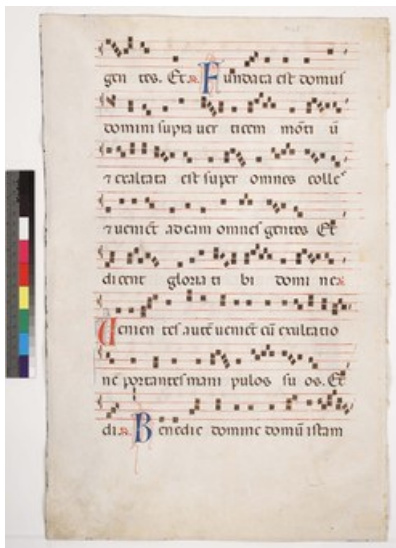 gen tes. Et. R. Fundata est domus
domini supra ver ticem mōti ū
⁊ exaltata est super omnes colles
⁊ venie͞t ad eam omnes gentes Et
dicent gloria ti bi domi ne R.
Uenien tes aute͞ venie͞t cū exultatio
ne portantes mani pulos su os. Et
di. R. Benedic domine domū istam